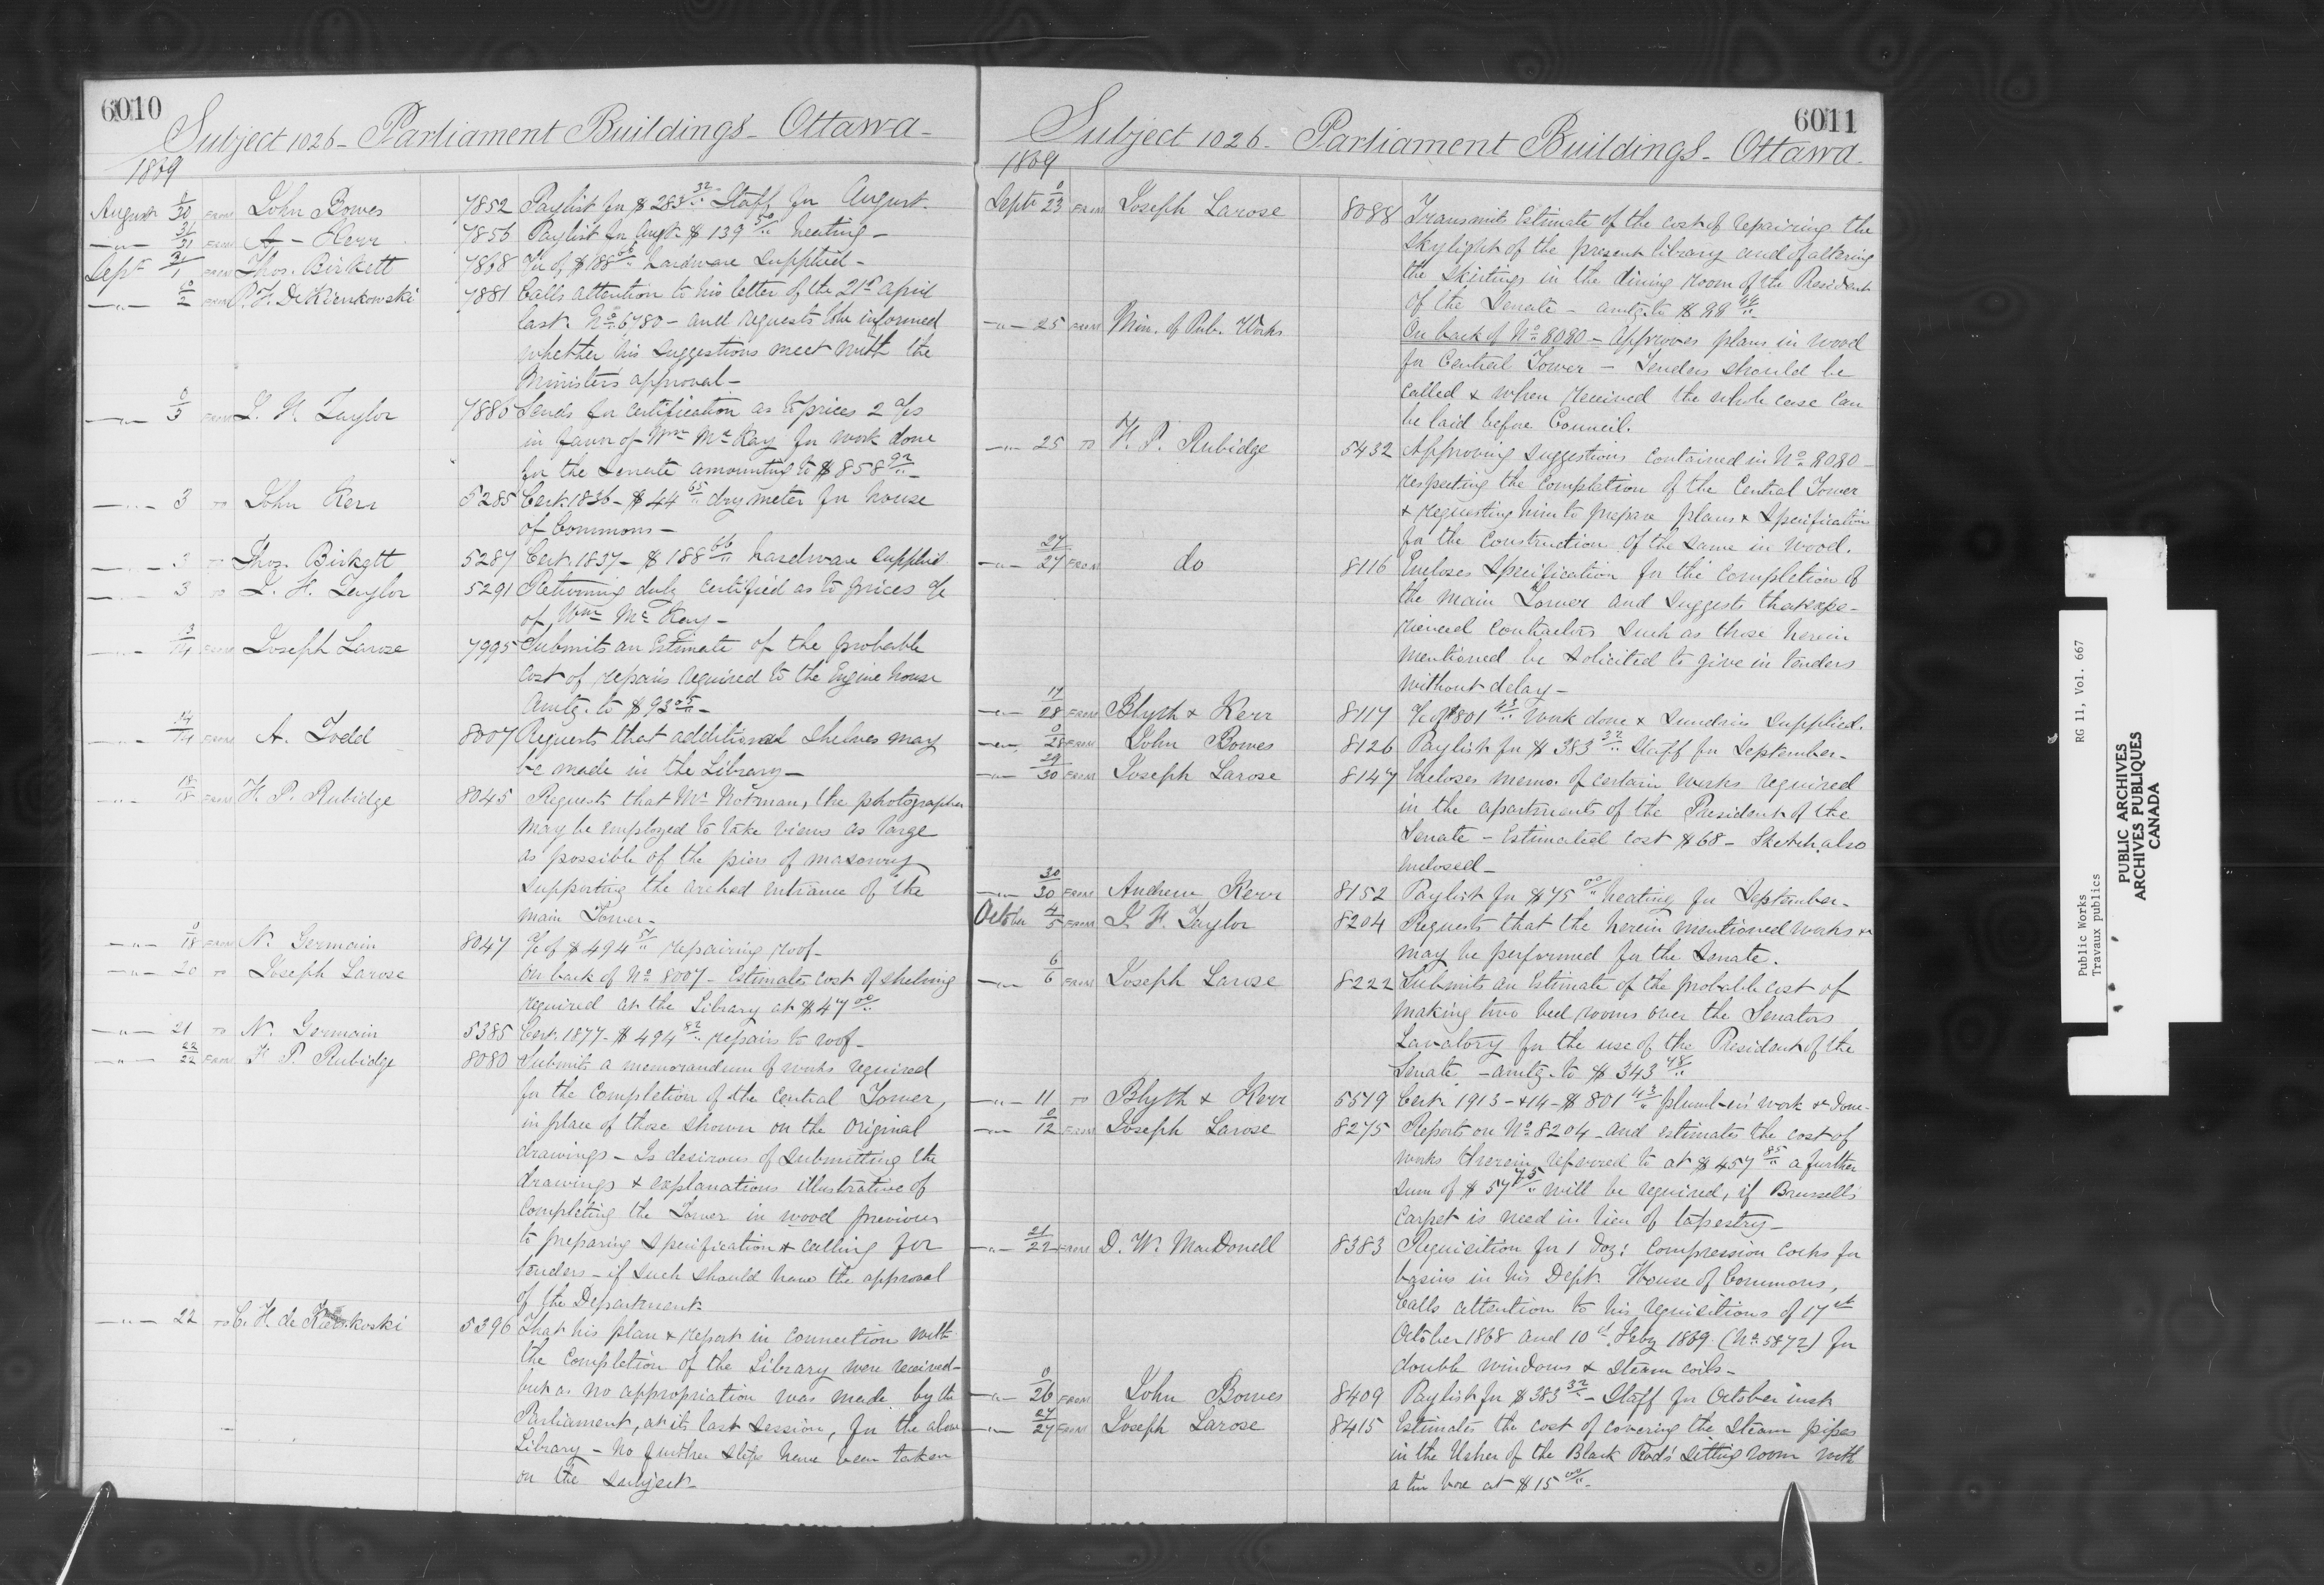 6010
Subject 1026 - Parliament Buildings - Ottawa -
1869
August 0/30 FROM John Bowes 7852 Paylist for $283 32/.. Staff for August.
-"- 31/31 FROM A - Kerr 7856 Paylist for Augt. $139 50/.. heating -
Sept 31/1 FROM Thos. Birkett 7868 a/c of $188 66/.. hardware supplied -
-"- 2 FROM 7881 Calls attention to his letter of the 21st April
last. No. 6780 - and requests to be informed
whether his suggestions meet with the
Minister's approval -
-"- 0/3 FROM L. H. Taylor 7886 Sends for certification as to prices 2 a/cs
in favor of Wm McKay for work done
for the Senate amounting to $858 92/.. -
-"- 3 TO John Kerr 5285 Cert. 1836 - $44 65/.. dry meter for house
of Commons -
-"- 3 TO Thos. Birkett 5287 Cert. 1837 - $188 66/.. hardware supplied
-"- 3 TO L. H. Taylor 5291 Returning duly certified as to prices a/c
of Wm McKay -
-"- 3/14 FROM Joseph Larose 7995 Submits an Estimate of the probable
cost of repairs required to the Engine house
Amtg. to $93 05/.. -
-"- 14/14 FROM A. Todd 8007 Requests that additional shelves may
be made in the Library -
-"- 18/18 FROM F. P. Rubidge 8045 Requests that Mr Notman, the photographer
may be employed to take views as large
as possible of the piers of masonry
supporting the arched entrance of the
main Tower -
-"- 0/18 FROM N. Germain 8047 a/c of $494 repairing roof -
-"- 20 TO Joseph Larose On back of No. 8007 - Estimates cost of shelving
required at the Library at $47 00/..
-"- 21 TO N. Germain 5385 Cert. 1877 - $494 82/.. repairs to roof -
-"- 22/22 FROM F. P. Rubidge 8080 Submits a memorandum of works required
for the completion of the Central Tower,
in place of those shown on the original
drawings - Is desirous of submitting the
drawings & explanations illustrative of
completing the Tower in wood previous
to preparing Specification & calling for
tenders - if such should have the approval
of the Department -
-"- 22 TO 5396 That his plan & report in connection with
the completion of the Library were received -
but as no appropriation was made by the
Parliament, at its last session, for the above
Library - No further steps have been taken
on the subject -
6011
Subject 1026 - Parliament Buildings - Ottawa -
1869
Sept 0/23 FROM Joseph Larose 8088 Transmits Estimate of the cost of repairing the
skylight of the present library and of altering
the skirtings in the dining room of the President
of the Senate - amtg. to $88 44/..
-"- 25 FROM Min. of Pub. Works On back of No. 8080 - Approves plans in wood
for Central Tower - Tenders should be
called & when received the whole case can
be laid before Council.
-"- 25 TO F. P. Rubidge 5432 Approving suggestions contained in No. 8080 -
respecting the completion of the Central Tower
& requesting him to prepare plans & Specification
for the construction of the same in wood.
-"- 27/27 FROM do 8116 Encloses Specification for the completion of
the main Tower and suggests that expe-
rienced Contractors such as those herein
mentioned be solicited to give in tenders
without delay -
-"- 17/28 FROM Blyth & Kerr 8117 a/c of $801 43/.. work done & sundries supplied.
-"- 0/28 FROM John Bowes 8126 Paylist for $383 32/.. Staff for September -
-"- 29/30 FROM Joseph Larose 8147 Encloses memo. of certain works required
in the apartments of the President of the
Senate - Estimated cost $68 - Sketch also
enclosed -
-"- 30/30 FROM Andrew Kerr 8152 Paylist for $75 00/.. heating for September -
October 4/5 FROM L. H. Taylor 8204 Requests that the herein mentioned works &c
may be performed for the Senate.
-"- 6/6 FROM Joseph Larose 8222 Submits an Estimate of the probable cost of
making two bed rooms over the Senators
Lavatory for the use of the President of the
Senate - amtg. to $343 48/..
-"- 11 TO Blyth & Kerr 5579 Cert. 1913 - & 14 - $801 43/.. plumbers' work &c done -
-"- 0/12 FROM Joseph Larose 8275 Reports on No. 8204 - and estimates the cost of
works therein referred to at $457 85/.. a further
sum of $57 75/.. will be required, if Brussells
carpet is used in lieu of tapestry -
-"- 21/22 FROM D. W. MacDonell 8383 Requisition for 1 doz: compression cocks for
basins in his Dept. House of Commons,
Calls attention to his requisitions of 17th
October 1868 and 10th Feby 1869. (No. 5872) for
double windows & steam coils -
-"- 0/26 FROM John Bowes 8409 Paylist for $383 32/.. - Staff for October inst.
-"- 27/27 FROM Joseph Larose 8415 Estimates the cost of covering the steam pipes
in the Usher of the Black Rod's sitting room with
a tin box at $15 00/.. -
Public Works
Travaux publics
RG 11, Vol. 667
PUBLIC ARCHIVES
ARCHIVES PUBLIQUES
CANADA